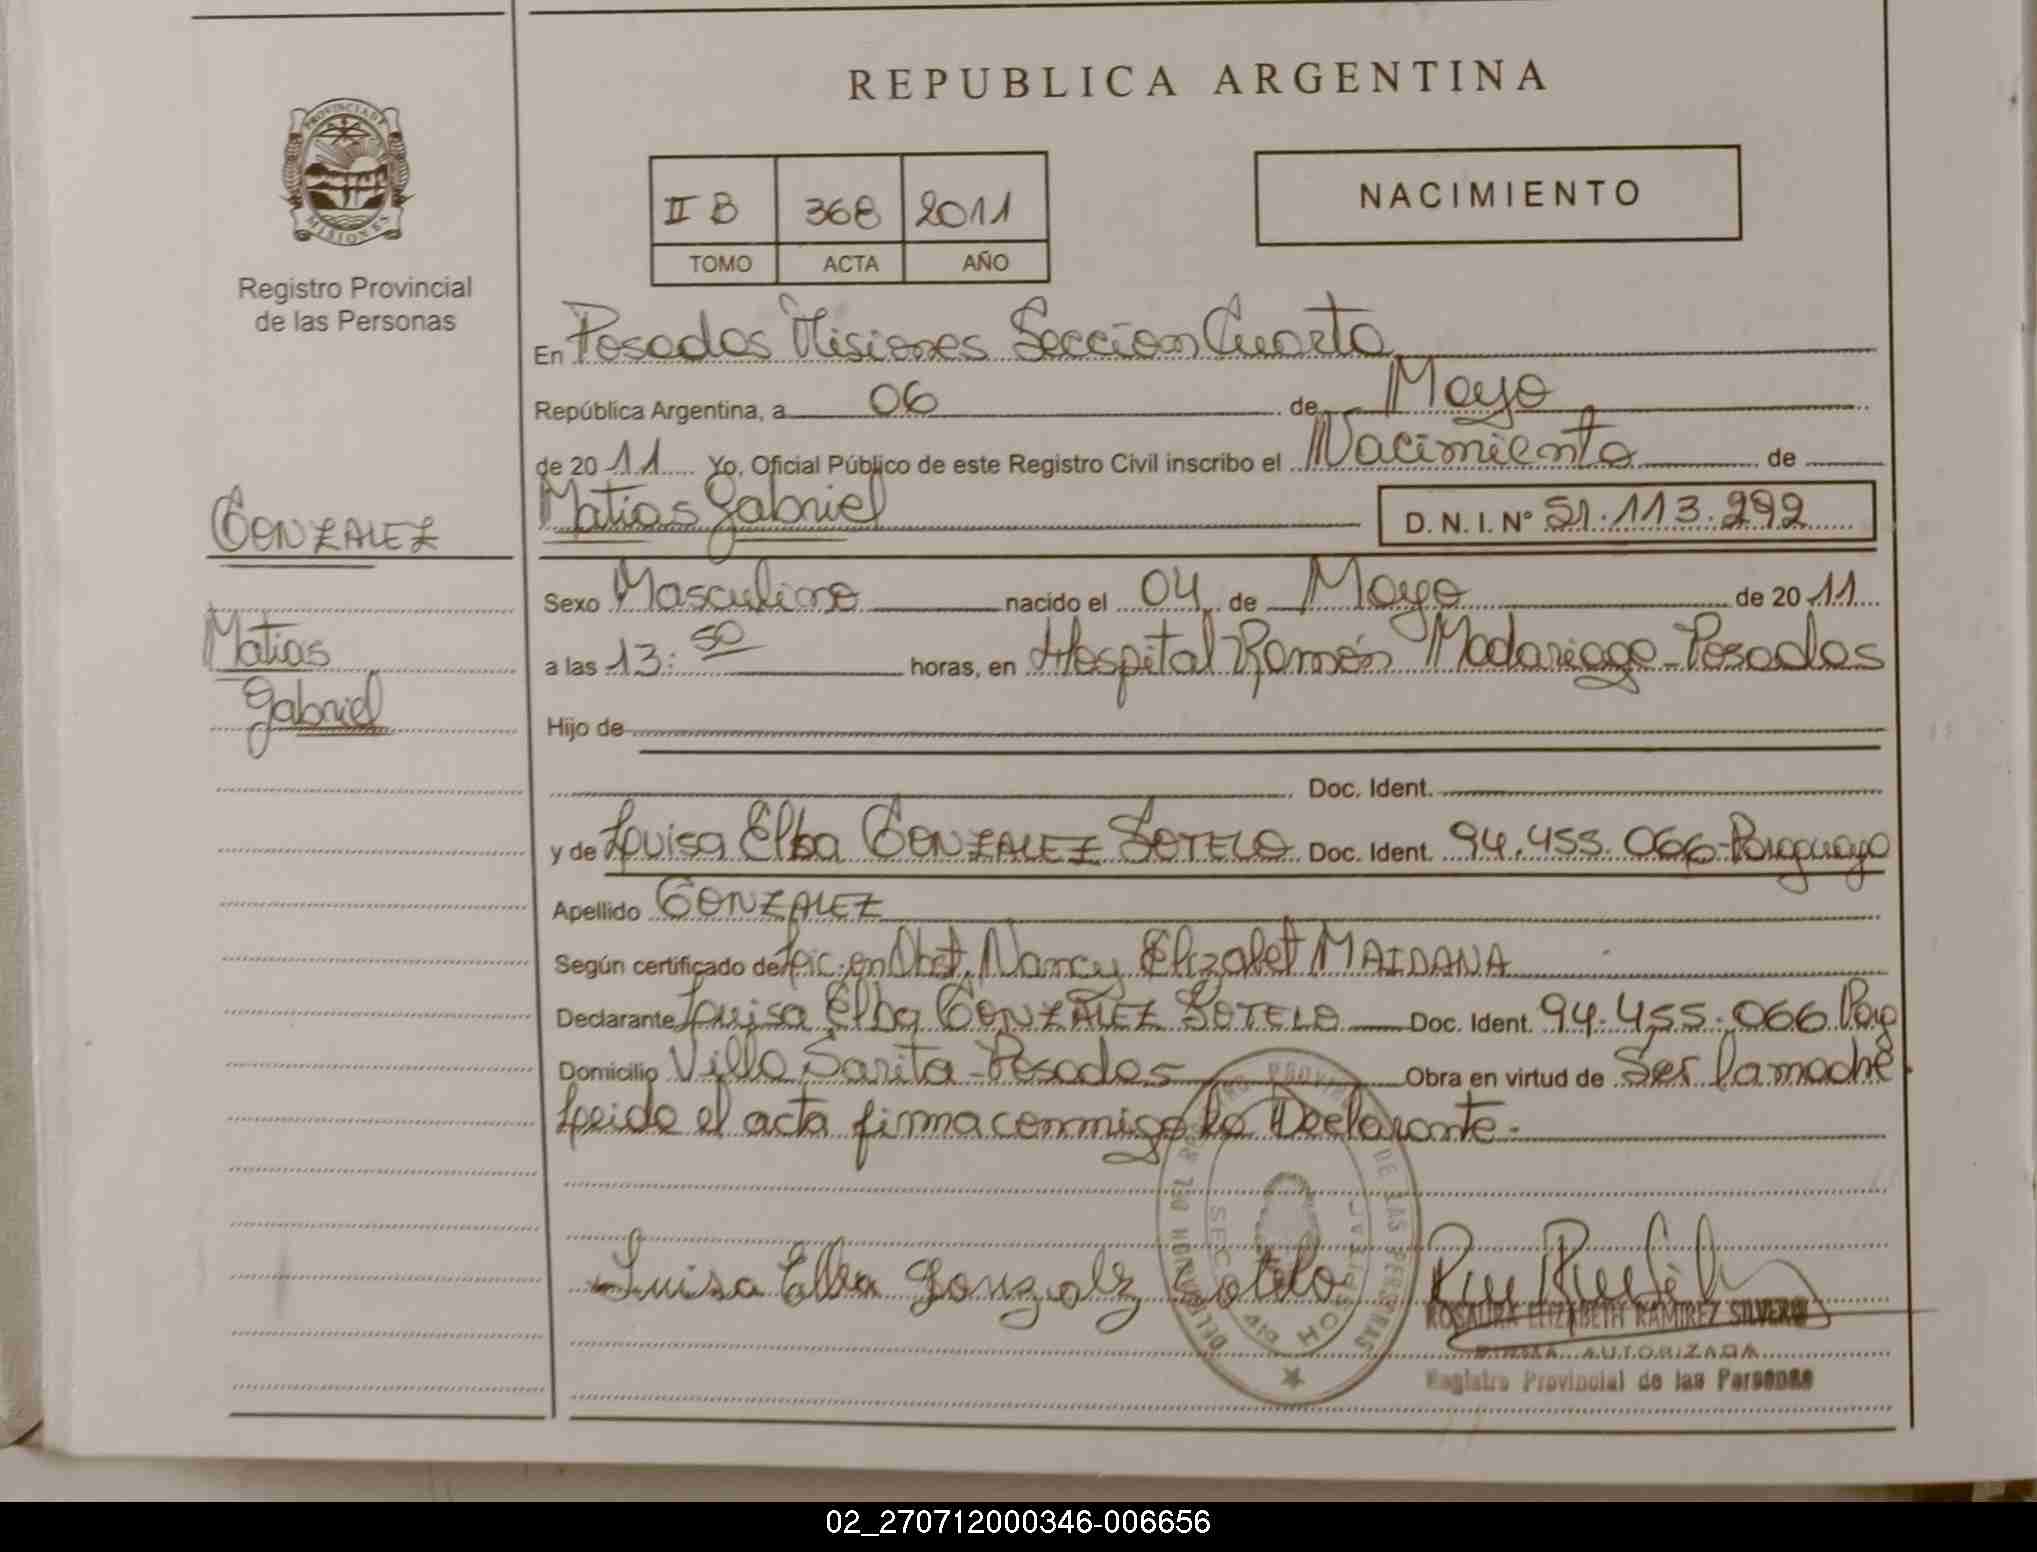 REPUBLICA ARGENTINA
PROVINCIA DE MISIONES
Registro Provincial
de las Personas
II B 368 2011
TOMO ACTA AÑO
NACIMIENTO
En Posadas Misiones Sección Cuarta
República Argentina, a 06 de Mayo
de 2011 Yo, Oficial Público de este Registro Civil inscribo el Nacimiento de
Matias Gabriel D. N. I. Nº 51.113.292
GONZALEZ
Matias
Gabriel
Sexo Masculino nacido el 04 de Mayo de 2011
a las 13:50 horas, en Hospital Ramón Madariaga-Posadas
Hijo de
Doc. Ident.
y de Louisa Elba GONZALEZ SOTELO Doc. Ident. 94.455.066-Paraguaya
Apellido GONZALEZ
Según certificado de Lic. en Obst. Nancy Elizabet MAIDANA
Declarante Luisa Elba GONZALEZ SOTELO Doc. Ident. 94.455.066 Parg
Domicilio Villa Sarita-Posadas Obra en virtud de Ser la madre
Leida el acta firma conmigo la Declarante.-
Luisa Elba Gonzalz Sotelo
ROSAURA ELIZABETH RAMIREZ SILVERO
FIRMA AUTORIZADA
Registro Provincial de las Personas
DE LAS PERSONAS
02_270712000346-006656